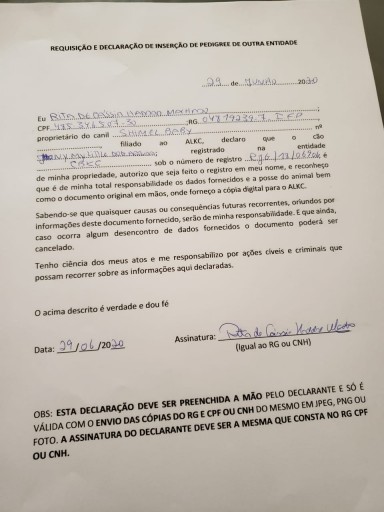 REQUISIÇÃO E DECLARAÇÃO DE INSERÇÃO DE PEDIGREE DE OUTRA ENTIDADE
29 de Junho 2020
Eu Rita de
CPF ;RG
proprietário do canil Shimel Baby nº
filiado ao ALKC, declaro que o cão
registrado na entidade
sob o número de registro é
de minha propriedade, autorizo que seja feito o registro em meu nome, e reconheço
que é de minha total responsabilidade os dados fornecidos e a posse do animal bem
como o documento original em mãos, onde forneço a cópia digital para o ALKC.
Sabendo-se que quaisquer causas ou consequências futuras recorrentes, oriundos por
informações deste documento fornecido, serão de minha responsabilidade. E que ainda,
caso ocorra algum desencontro de dados fornecidos o documento poderá ser
cancelado.
Tenho ciência dos meus atos e me responsabilizo por ações cíveis e criminais que
possam recorrer sobre as informações aqui declaradas.
O acima descrito é verdade e dou fé
Data: 29/06/2020 Assinatura: Rita de
(Igual ao RG ou CNH)
OBS: ESTA DECLARAÇÃO DEVE SER PREENCHIDA A MÃO PELO DECLARANTE E SÓ É
VÁLIDA COM O ENVIO DAS CÓPIAS DO RG E CPF OU CNH DO MESMO EM JPEG, PNG OU
FOTO. A ASSINATURA DO DECLARANTE DEVE SER A MESMA QUE CONSTA NO RG CPF
OU CNH.